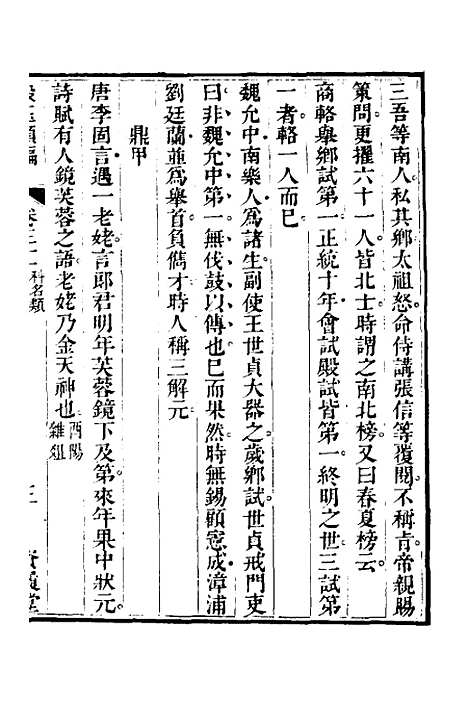 三吾等南人私其鄉太祖怒命侍講張信等覆閱不稱旨帝親賜
策問更擢六十一人皆北士時謂之南北榜又曰春夏榜云
商輅舉鄉試第一正統十年會試殿試皆第一終明之世三試第
一者輅一人而已
魏允中南樂人爲諸生副使王世貞大器之歲鄉試世貞戒門吏
曰非魏允中第一無伐鼓以傳也已而果然時無錫顧憲成漳浦
劉廷蘭並爲舉首負儁才時人稱三解元
鼎甲
唐李固言遇一老姥言郎君明年芙蓉鏡下及第來年果中狀元
詩賦有人鏡芙蓉之語老姥乃金天神也酉陽雜俎
類編
科名類
三